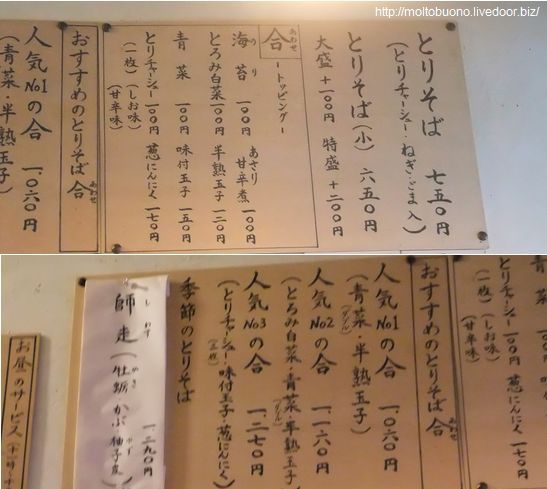 http://moltobuono.livedoor.biz/
とりそば 七五〇円
(とりチャーシュー・ねぎ・ごま入)
とりそば(小) 六五〇円
大盛+一〇〇円 特盛+二〇〇円
合 あわせ
ートッピングー
海苔 のり 一〇〇円 あさり甘辛煮 一〇〇円
とろみ白菜 一〇〇円 半熟玉子 一二〇円
青菜 一〇〇円 味付玉子 一五〇円
とりチャーシュー 一〇〇円 葱にんにく 一七〇円
(一枚)(しお味)
(甘辛味)
おすすめのとりそば合 あわせ
人気No1の合 一、〇六〇円
(青菜・半熟玉子)
とりチャーシュー 一〇〇円 葱にんにく 一七〇円
(一枚)(しお味)
(甘辛味)
おすすめのとりそば合 あわせ
人気No1の合 一、〇六〇円
(青菜・半熟玉子)
(ダブル)
人気No2の合 一、一六〇円
(とろみ白菜・青菜・半熟玉子)
(ダブル)
人気No3の合 一、二七〇円
(とりチャーシュー・味付玉子・葱にんにく)
季節のとりそば
師走 しわす (牡蛎・かぶ・柚子皮) 一、二九〇円
お昼のサービス